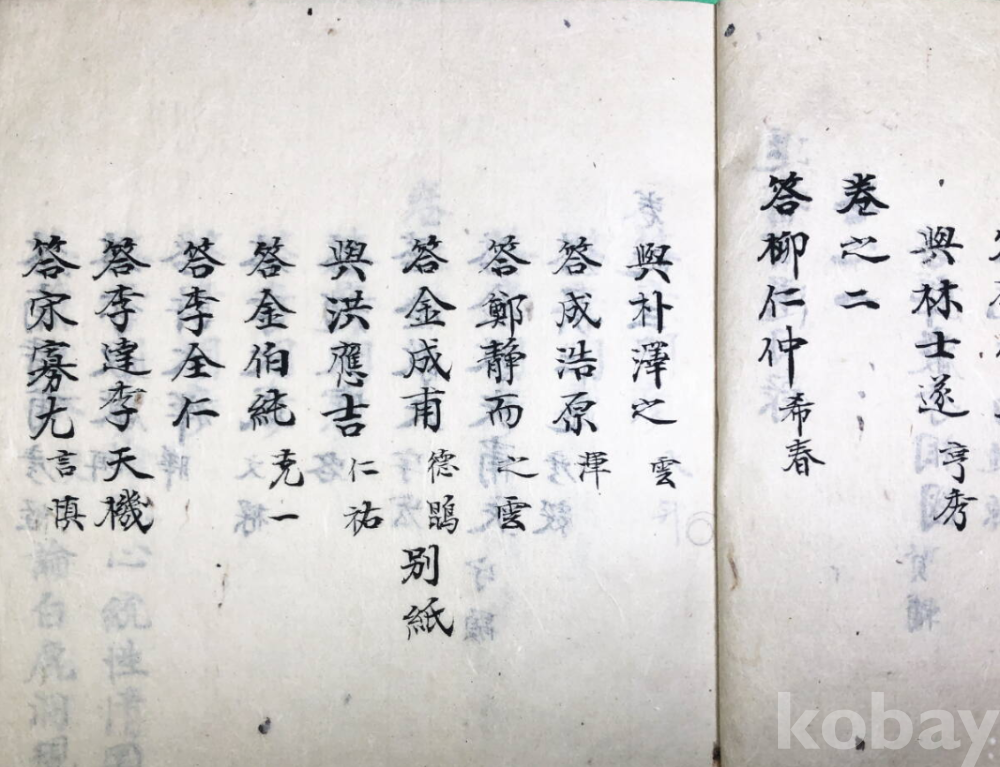 與林士遂 亨秀
卷之二
答柳仁仲 希春
與朴澤之 雲
答成浩原 渾
答鄭靜而 之雲
答金成甫 德鵾 別紙
與洪應吉 仁祐
答金伯純 克一
答李全仁
答李達李天機
答宋寡尤 言慎
kobay